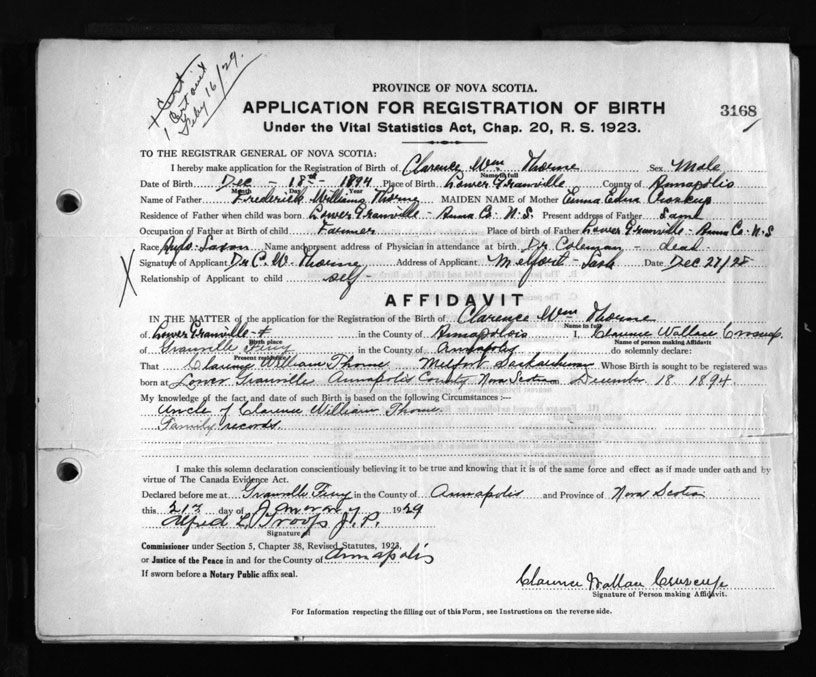 1 Cert
Feby 16/29.
PROVINCE OF NOVA SCOTIA.
APPLICATION FOR REGISTRATION OF BIRTH
3168
Under the Vital Statistics Act, Chap. 20, R. S. 1923.
TO THE REGISTRAR GENERAL OF NOVA SCOTIA:
I hereby make application for the Registration of Birth of Clarence Wm Thorne Sex Male
Name in full
Date of Birth Dec - 18th - 1894 Place of Birth Lower Granville County of Annapolis
Month Day Year
Name of Father Frederick Williams Thorne MAIDEN NAME of Mother Emma Edna
Residence of Father when child was born Lower Granville - Anna Co. N.S. Present address of Father Same
Occupation of Father at Birth of child Farmer Place of birth of Father Lower Granville - Anna Co. N.S
Race Anglo-Saxon Name and present address of Physician in attendance at birth Dr. Coleman - dead
Signature of Applicant Dr C. W. Thorne Address of Applicant Melfort - Sask Date Dec 27/28
X
Relationship of Applicant to child self -
AFFIDAVIT
IN THE MATTER of the application for the Registration of the Birth of Clarence Wm Thorne
Name in full
of Lower Granville - + in the County of Annapolis I, Clarence Wallace Croscup
Birth place Name of person making Affidavit
of Granville Ferry in the County of Annapolis do solemnly declare:
Present residence
That William Thorne Melfort Saskatchewan Whose Birth is sought to be registered was
born at Lower Granville Annapolis County Nova Scotia December 18 1894
My knowledge of the fact, and date of such Birth is based on the following Circumstances :—
Uncle of Clarence William Thorne
Family records.
I make this solemn declaration conscientiously believing it to be true and knowing that it is of the same force and effect as if made under oath and by
virtue of The Canada Evidence Act.
Declared before me at Granville Ferry in the County of Annapolis and Province of Nova Scotia
this day of January 1929
Alfred L. Troop J. P.
Signature of
Commissioner under Section 5, Chapter 38, Revised Statutes, 1923,
or Justice of the Peace in and for the County of Annapolis
If sworn before a Notary Public affix seal.
Clarence Wallace Croscup
Signature of Person making Affidavit.
For Information respecting the filling out of this Form, see Instructions on the reverse side.